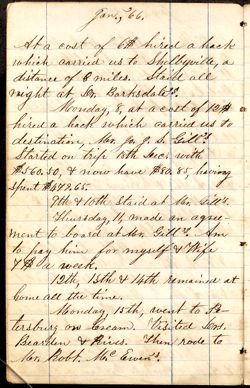 Jan., '66.
At a cost of 6$ hired a hack
which carried us to Shelbyville, a
distance of 8 miles. Staid all
night at Mr. Barksdale's.
Monday, 8, at a cost of 12$
hired a hack which carried us to
destination, Mr. Jo. J. S. Gill's.
Started on trip 18th Decr. with
$560.50, & now have $80.85, having
spent $479.65.
9th & 10th Staid at Mr. Gill's.
Thursday, 11, made an agree-
ment to board at Mr. Gill's. Am
to pay him for myself & Wife
7$ a week.
12th, 13th & 14th remained at
home all the time.
Monday, 15th, went to Pe-
tersburg on Visited Drs.
Bearden & Rives. Then rode to
Mr. Robt. McEwen's.